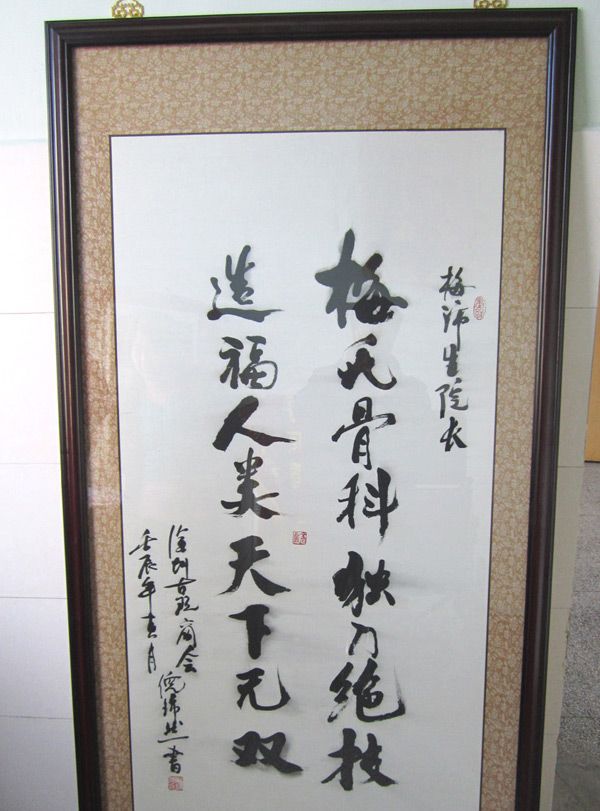 梅沛生院长
梅氏骨科独乃绝技
造福人类天下无双
徐州古玩商会倪书
壬辰年月